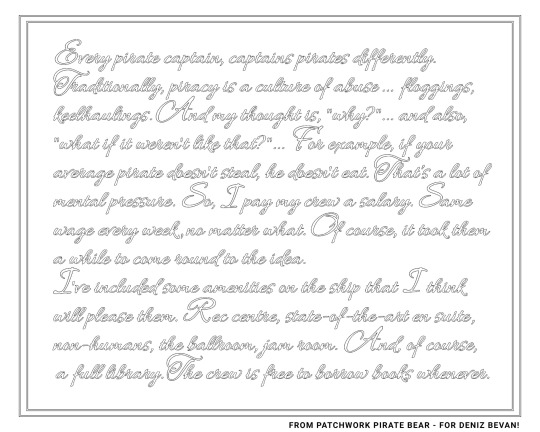 Every pirate captain, captains pirates differently.
Traditionally, piracy is a culture of abuse ... floggings,
keelhaulings. And my thought is, "why?"... and also,
"what if it weren't like that?"... For example, if your
average pirate doesn't steal, he doesn't eat. That's a lot of
mental pressure. So, I pay my crew a salary. Same
wage every week, no matter what. Of course, it took them
a while to come round to the idea.
I've included some amenities on the ship that I think
will please them. Rec centre, state-of-the-art en suite,
non-humans, the ballroom, jam room. And, of course,
a full library. The crew is free to borrow books whenever.
FROM PATCHWORK PIRATE BEAR - FOR DENIZ BEVAN!